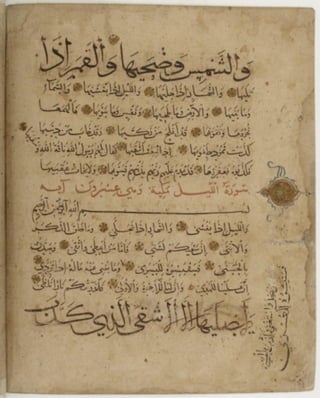 والشمس وضحيها والقمر اذا
تليها والنهار اذا جليها والليل اذا يغشيها والسماء
وما بنيها والارض وما طحيها ونفس وما سويها فالهمها
فجورها وتقويها قد افلح من زكيها وقد خاب من دسيها
كذبت ثمود بطغويها اذ انبعث اشقيها فقال لهم رسول الله ناقة الله و
سقيها فكذبوه فعقروها فدمدم عليهم ربهم بذنبهم فسويها ولا يخاف عقبيها
سورة الليل مكية وهي عشرون آية
بسم الله الرحمن الرحيم
والليل اذا يغشى والنهار اذا تجلى وما خلق الذكر
والانثى ان سعيكم لشتى فاما من اعطى واتقى وصدق
بالحسنى فسنيسره لليسرى وما يغني عنه ماله اذا تردى
ان علينا للهدى وان لنا للاخرة والاولى فانذرتكم نارا تلظى
لا يصليها الا الاشقى الذي كذب
واما من بخل واستغنى وكذب بالحسنى
فسنيسره للعسرى